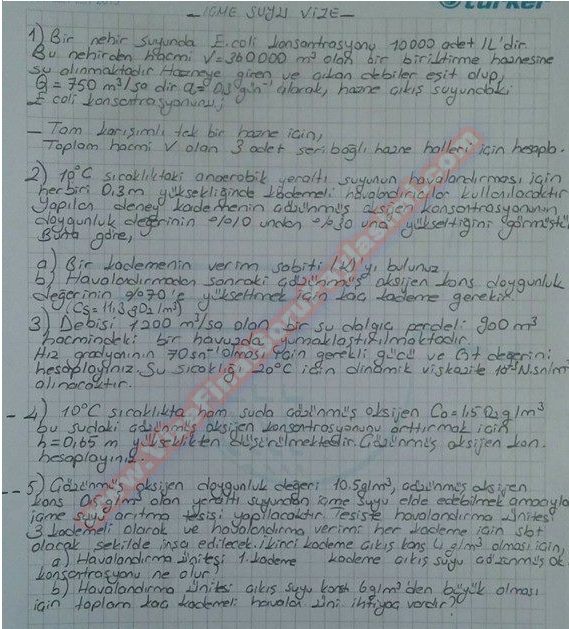 türker
- İÇME SUYU VİZE -
1) Bir nehir suyunda E.coli konsantrasyonu 10000 adet /L'dir.
Bu nehirden hacmi V=360000 m³ olan bir biriktirme haznesine
su alınmaktadır. Hazneye giren ve çıkan debiler eşit olup,
Q = 750 m³/sa dir. a= 0,3 gün⁻¹ alarak, hazne çıkış suyundaki
E coli konsantrasyonunu;
- Tam karışımlı tek bir hazne için,
Toplam hacmi V olan 3 adet seri bağlı hazne halleri için hesapla.
2) 10°C sıcaklıktaki anaerobik yeraltı suyunun havalandırması için
herbiri 0,3m yüksekliğinde kademeli havalandırıcılar kullanılacaktır
Yapılan deney kademenin çözünmüş oksijen konsantrasyonunun
doygunluk değerinin %10 undan %30 una yükselttiğini görmüştür
Buna göre,
a) Bir kademenin verim sabiti (k)'yı bulunuz
b) Havalandırmadan sonraki çözünmüş oksijen kons doygunluk
değerinin %70'e yükseltmek için kaç kademe gerekir.
(Cs= 11,3 gO2/m³)
3) Debisi 1200 m³/sa olan bir su dalgıç perdeli 900 m³
hacmindeki bir havuzda yumaklaştırılmaktadır.
Hız gradyanının 70 sn⁻¹ olması için gerekli gücü ve Gt değerini
hesaplayınız. Su sıcaklığı 20°C için dinamik viskozite 10⁻³ N.sn/m²
alınacaktır.
- 4) 10°C sıcaklıkta ham suda çözünmüş oksijen Co=1,5 O2 g/m³
bu sudaki çözünmüş oksijen konsantrasyonunu arttırmak için
h=0,65 m yükseklikten düşürülmektedir. Çözünmüş oksijen kon.
hesaplayınız.
-- 5) Çözünmüş oksijen doygunluk değeri 10.5g/m³, çözünmüş oksijen
kons 0,5g/m³ olan yeraltı suyundan içme suyu elde edebilmek amacıyla
içme suyu arıtma tesisi yapılacaktır. Tesiste havalandırma ünitesi
3 kademeli olarak ve havalandırma verimi her kademe için sbt
olacak şekilde inşa edilecek. İkinci kademe çıkış kons 4 g/m³ olması için,
a) Havalandırma ünitesi 1.kademe kademe çıkış suyu çözünmüş ok.
konsantrasyonu ne olur?
b) Havalandırma Ünitesi çıkış suyu kons 6g/m³'den büyük olması
için toplam kaç kademeli havalan. üni ihtiyaç vardır?
www.VizeFinalSorulariPaylasmasi.com